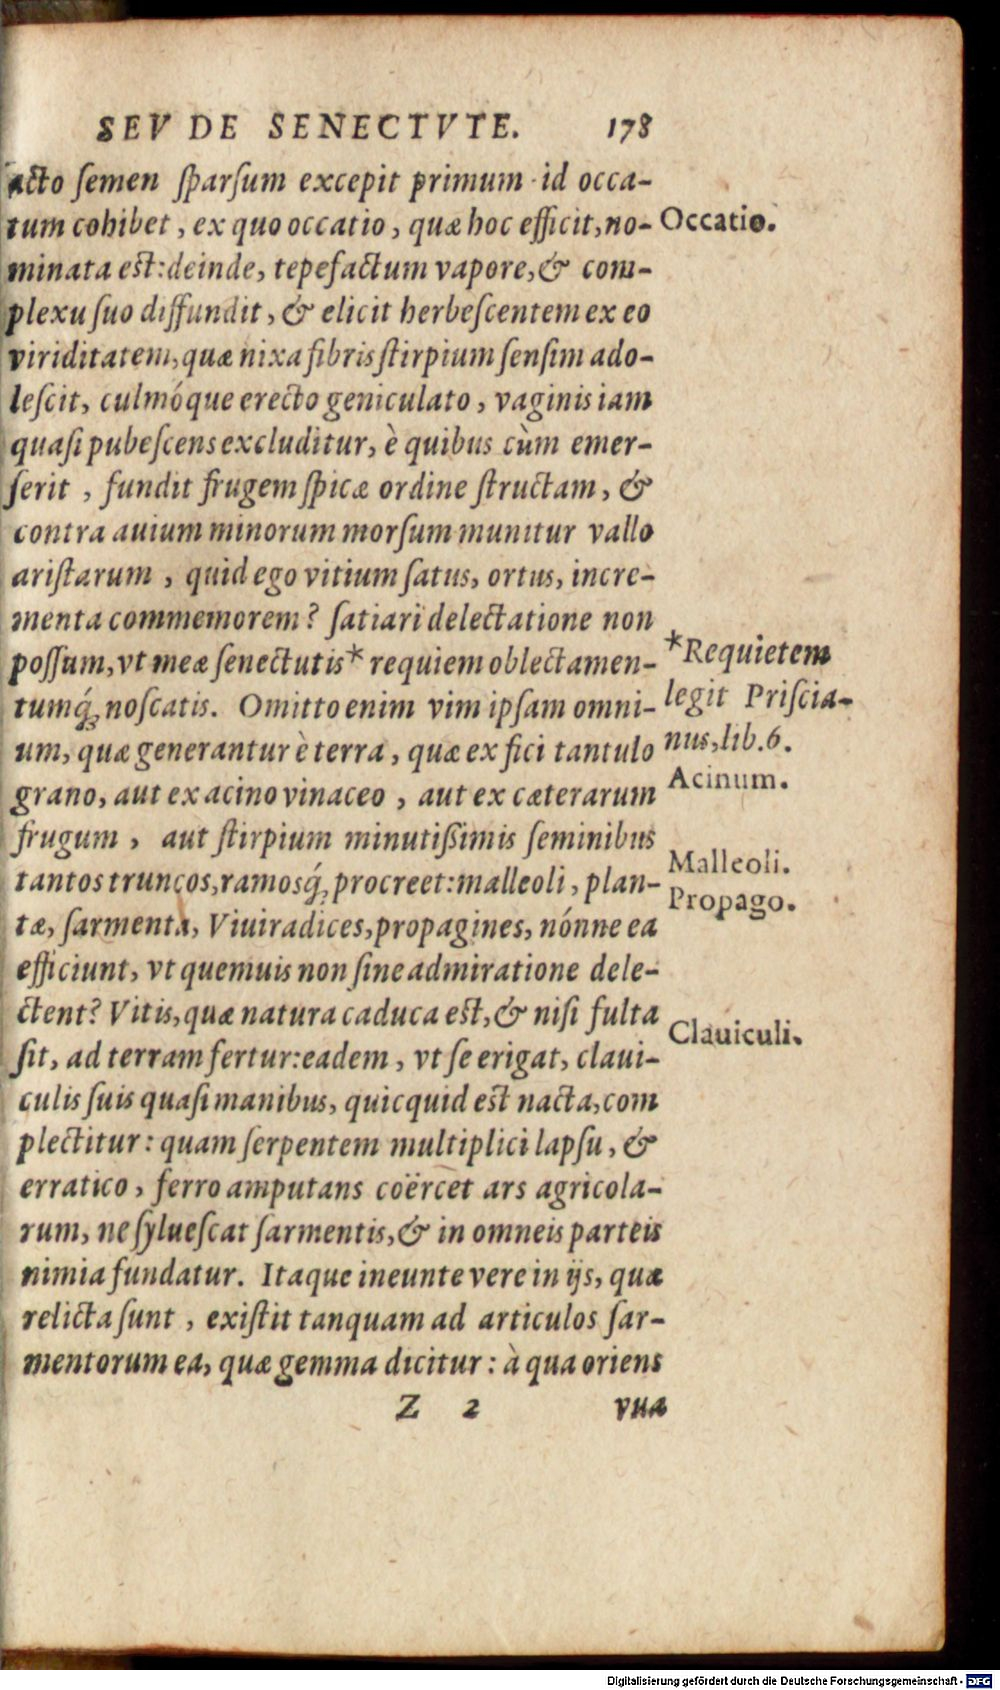 SEV DE SENECTVTE. 178
acto ſemen ſparſum excepit primum id occa-
tum cohibet, ex quo occatio, quæ hoc efficit, no-
Occatio.
minata est: deinde, tepefactum vapore, & com-
plexu ſuo diffundit, & elicit herbeſcentem ex eo
viriditatem, quæ nixa fibris ſtirpium ſenſim ado-
leſcit, culmóque erecto geniculato, vaginis iam
quaſi pubeſcens excluditur, è quibus cùm emer-
ſerit, fundit frugem ſpicæ ordine ſtructam, &
contra auium minorum morſum munitur vallo
ariſtarum, quid ego vitium ſatus, ortus, incre-
menta commemorem? ſatiari delectatione non
poſſum, vt meæ ſenectutis* requiem oblectamen-
*Requietem
tumq́; noſcatis. Omitto enim vim ipſam omni-
legit Priſcia-
um, quæ generantur è terra, quæ ex fici tantulo
nus, lib. 6.
grano, aut ex acino vinaceo, aut ex cæterarum
Acinum.
frugum, aut ſtirpium minutißimis ſeminibus
tantos truncos, ramosq́; procreet: malleoli, plan-
Malleoli.
tæ, ſarmenta, Viuiradices, propagines, nónne ea
Propago.
efficiunt, vt quemuis non ſine admiratione dele-
ctent? Vitis, quæ natura caduca est, & niſi fulta
ſit, ad terram fertur: eadem, vt ſe erigat, claui-
Clauiculi.
culis ſuis quaſi manibus, quicquid est nacta, com
plectitur: quam ſerpentem multiplici lapſu, &
erratico, ferro amputans coërcet ars agricola-
rum, ne ſylueſcat ſarmentis, & in omneis parteis
nimia fundatur. Itaque ineunte vere in ijs, quæ
relicta ſunt, exiſtit tanquam ad articulos ſar-
mentorum ea, quæ gemma dicitur: à qua oriens
Z 2 vua
Digitalisierung gefördert durch die Deutsche Forschungsgemeinschaft - DFG